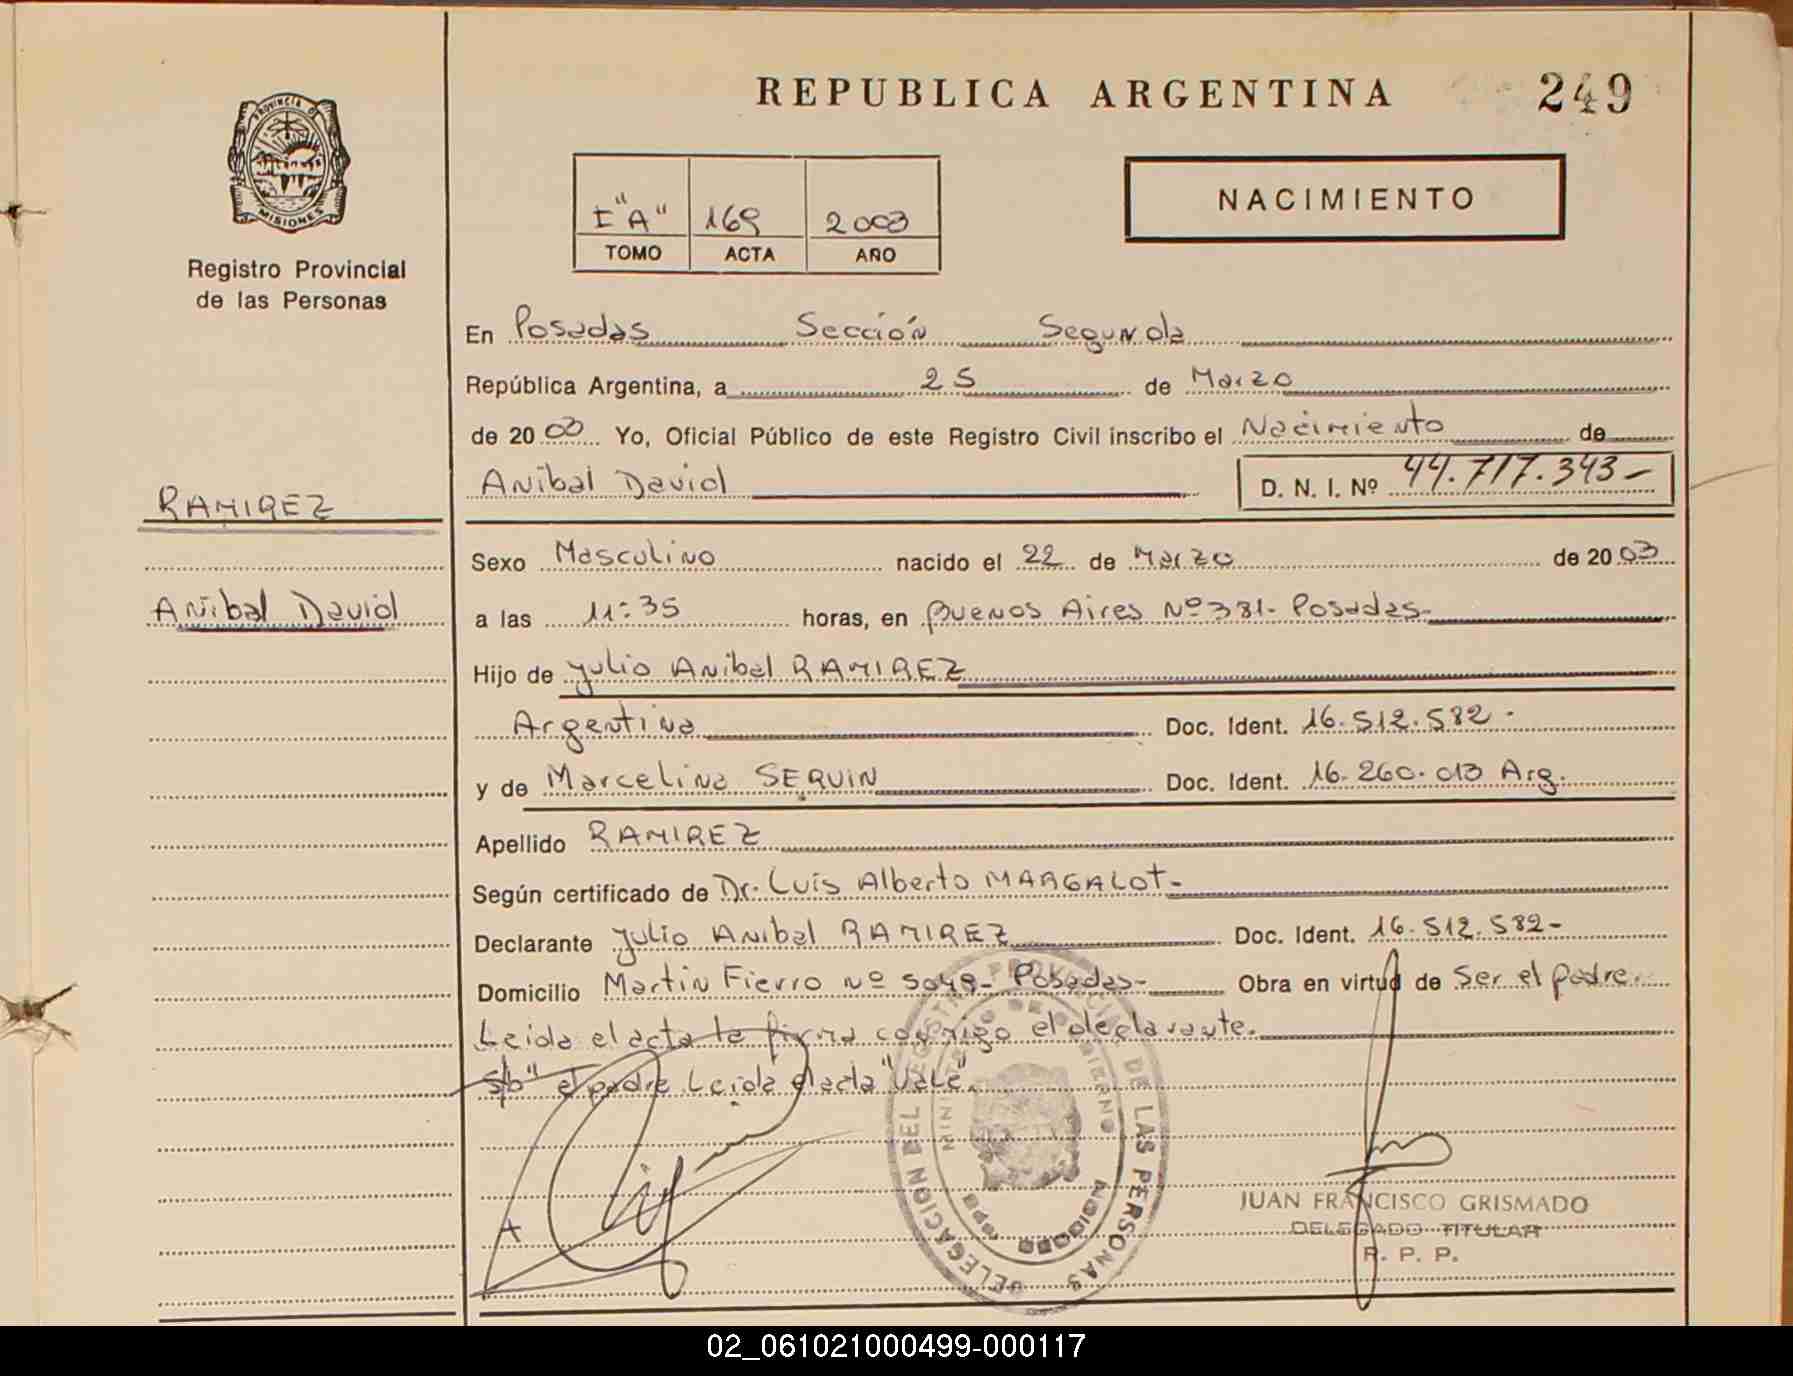 REPUBLICA ARGENTINA 249
PROVINCIA DE
MISIONES
Registro Provincial
de las Personas
I "A" 169 2003
TOMO ACTA AÑO
NACIMIENTO
En Posadas Sección Segunda
República Argentina, a 25 de Marzo
de 2003 Yo, Oficial Público de este Registro Civil inscribo el Nacimiento de
Anibal David D. N. I. Nº 44.717.343-
RAMIREZ
Anibal David
Sexo Masculino nacido el 22 de Marzo de 2003
a las 11:35 horas, en Buenos Aires Nº 381- Posadas-
Hijo de Julio Anibal RAMIREZ
Argentina Doc. Ident. 16.512.582-
y de Marcelina SEQUIN Doc. Ident. 16.260.013 Arg.
Apellido RAMIREZ
Según certificado de Dr. Luis Alberto MARGALOT-
Declarante Julio Anibal RAMIREZ Doc. Ident. 16.512.582-
Domicilio Martin Fierro Nº 5049- Posadas- Obra en virtud de Ser el padre.
Leida el acta la firma conmigo el declarante.
S/b" el padre Leida el acta "Vale".
DELEGACION DEL REGISTRO PROVINCIAL DE LAS PERSONAS
MINISTERIO DE GOBIERNO
POSADAS MISIONES
JUAN FRANCISCO GRISMADO
DELEGADO TITULAR
R. P. P.
02_061021000499-000117